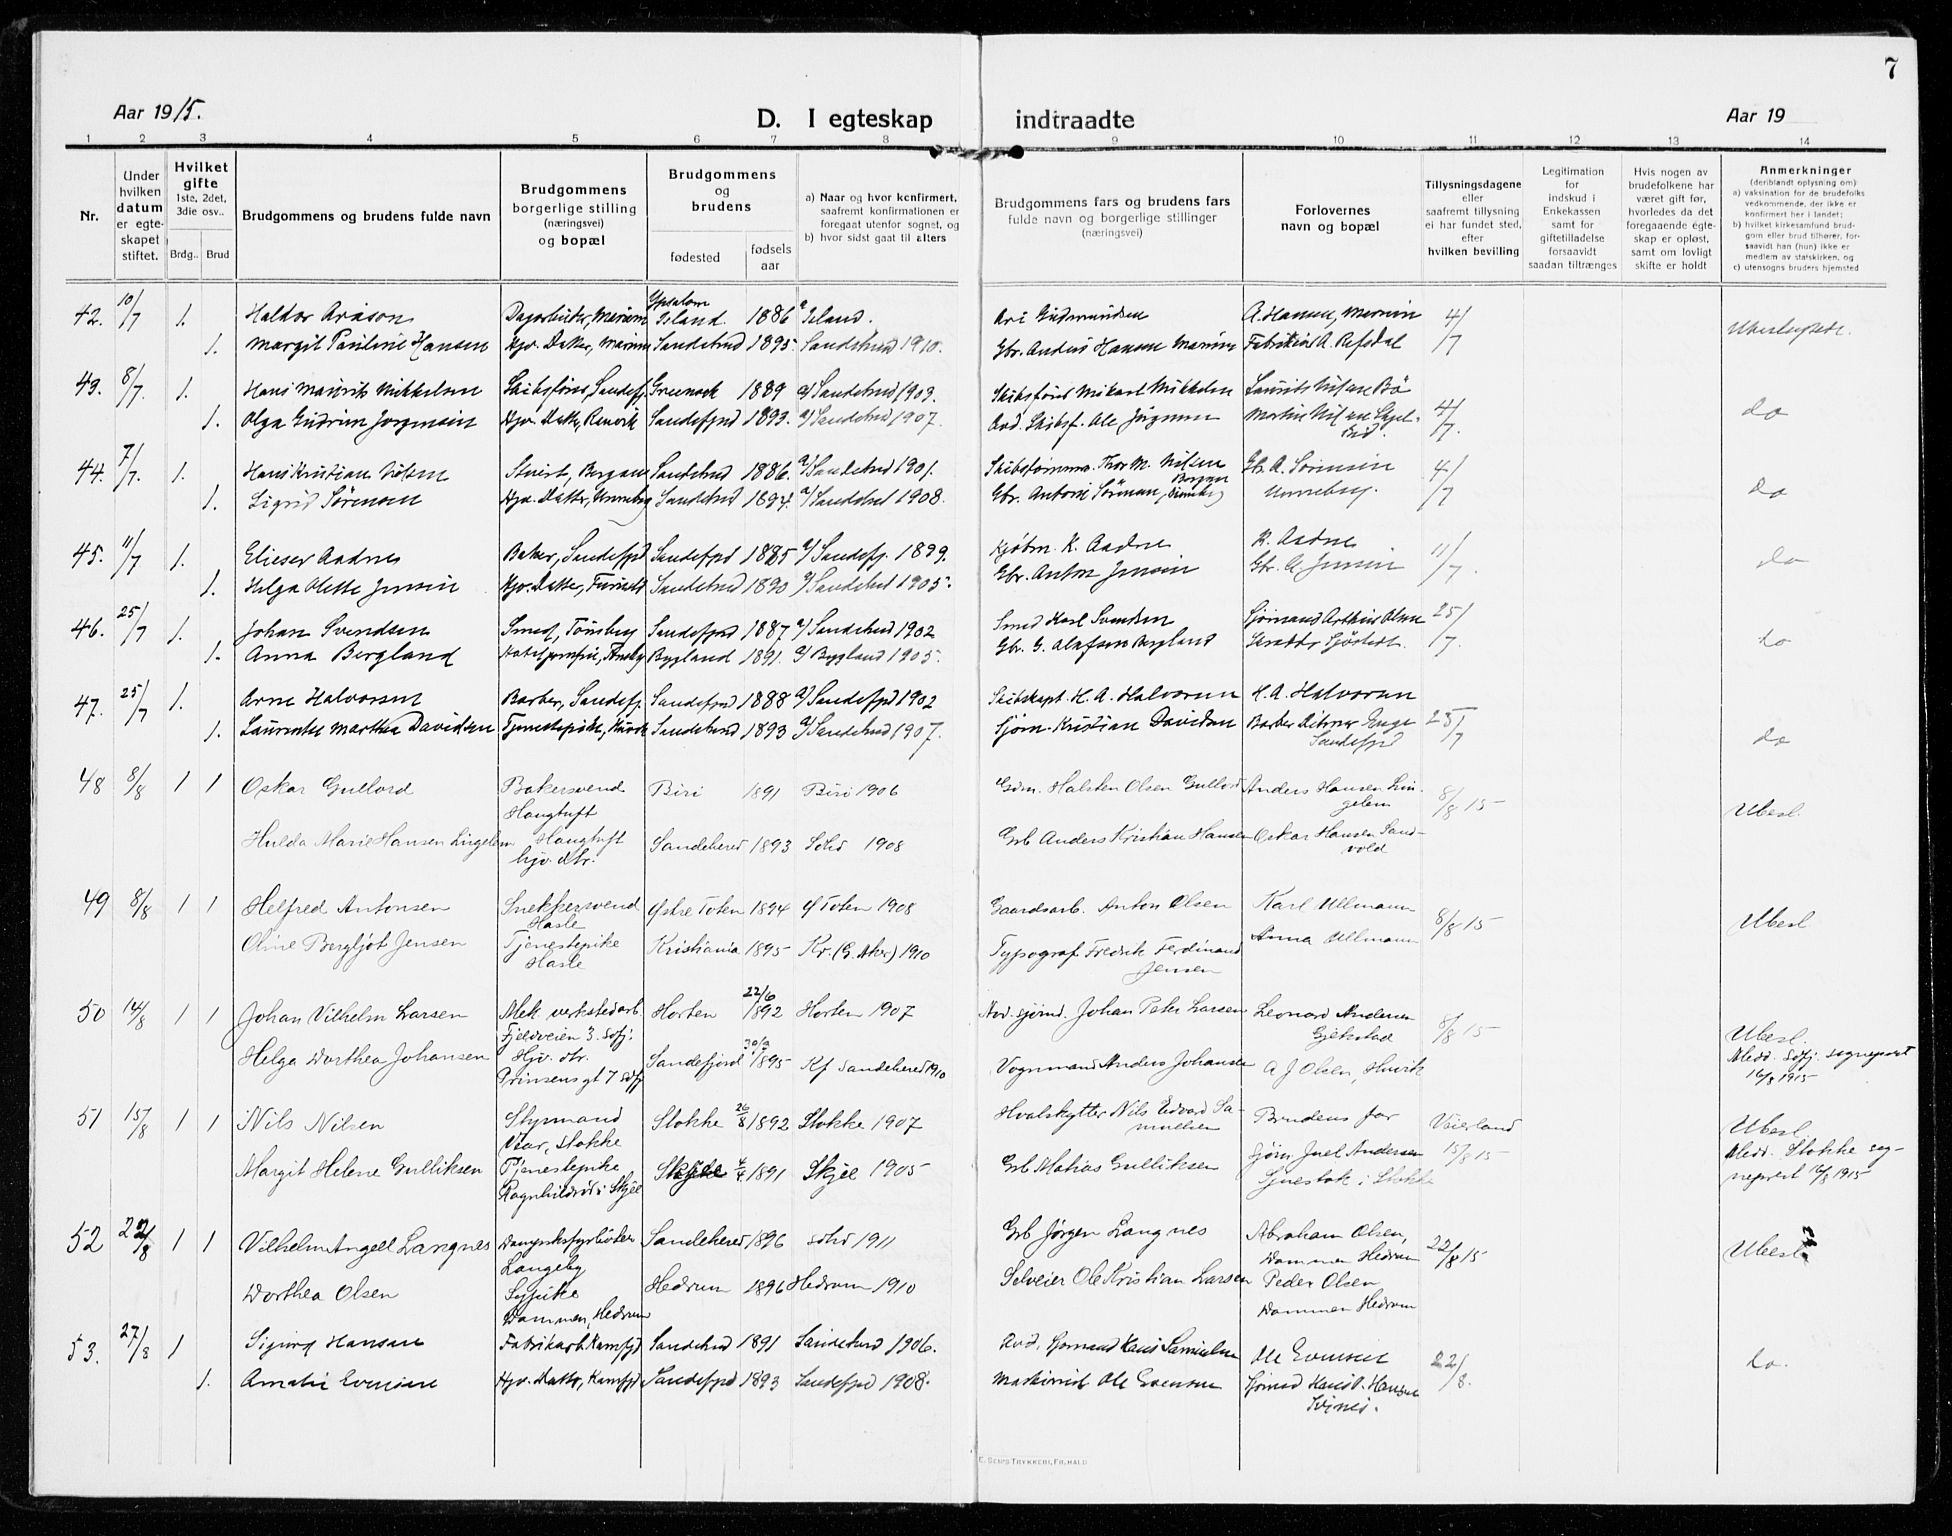 7
Aar 1915.
D. I egteskap indtraadte
Aar 19
1 2 3 4 5 6 7 8 9 10 11 12 13 14
Nr.
Under hvilken datum er egteskapet stiftet.
Hvilket gifte
1ste, 2det, 3die osv..
Brdg.. Brud
Brudgommens og brudens fulde navn
Brudgommens borgerlige stilling (næringsvei) og bopæl
Brudgommens og brudens
fødested
fødsels aar
a) Naar og hvor konfirmert, saafremt konfirmationen er foregaat utenfor sognet, og
b) hvor sidst gaat til alters
Brudgommens fars og brudens fars fulde navn og borgerlige stillinger (næringsvei)
Forlovernes navn og bopæl
Tillysningsdagene eller saafremt tillysning ei har fundet sted, efter hvilken bevilling
Legitimation for indskud i Enkekassen samt for giftetilladelse forsaavidt saadan tiltrænges
Hvis nogen av brudefolkene har været gift før, hvorledes da det foregaaende egteskap er opløst, samt om lovligt skifte er holdt
Anmerkninger
(deriblandt oplysning om)
a) vaksination for de brudefolks vedkommende, der ikke er konfirmert her i landet;
b) hvilket kirkesamfund brudgom eller brud tilhører, forsaavidt han (hun) ikke er medlem av statskirken, og
c) utensogns bruders hjemsted
42. 10/7 1. Haldor Arason Island 1886 a Island. A. Hansen 4/7
1. Margit Pauline Hansen Hjv. Datter Sandeherred 1895. Sandeherred 1910. Gbr. Anders Hansen
43. 8/7. 1. Hans Mauritz Mikkelsen Skibsfører, Sandefj. Greenock 1889 a/ Sandeherred 1903. 4/7. do
1. Olga Gudrun Jørgensen Hjv. Datter Sandefjord 1893. a/ Sandeherred 1907. Avd. Skibsf. Ole Jørgensen
44. 7/7. 1. Hans Kristian Nilsen Bergan Sandeherred 1886. a/ Sandeherred 1901. Thor M. Nilsen Gbr. A. Sørensen 4/7 do
1. Sigrid Sørensen Hjv. Datter, Unneberg Sandeherred 1894. a/ Sandeherred 1908. Unneberg.
45. 11/7 1. Elieser Aadnes Baker, Sandefjord Sandefjord 1885 a/ Sandefj. 1899. Kjøbm. K. Aadne K. Aadne 11/7. do
1. Helga Olette Jensen Hjv. Datter Sandeherred 1890 a/ Sandeherred 1905. Gbr. Anton Jensen Gbr. A. Jensen
46. 25/7 1. Johan Svendsen Smed, Tønsberg Sandefjord 1887 a/ Sandeherred 1902 Smed Karl Svendsen Sjømand Arthur Olsen 25/7. do
1. Anna Bergland Bygland 1891. a/ Bygland 1905. Gbr. G. Olafsen Bergland
47. 25/7 1. Arne Halvorsen Barber, Sandefj. Sandefjord 1888 a/ Sandefjord 1902 Skibskapt. H. A. Halvorsen H. A. Halvorsen
1. Laurentse Marthea Davidsen Tjenestepike Sandeherred 1893 a/ Sandeherred 1907. Sjøm. Kristian Davidsen Sandefjord 25/7 do
48 8/8 1 1 Oskar Gullord Bakersvend Haugtuft Biri 1891 Biri 1906 Gdm. Halsten Olsen Gullord Anders Hansen Lingelem 8/8 15 Ubesl.
Hulda Marie Hansen Lingelem Haugtuft hjv. dtr. Sandeherred 1893 Sehd 1908 Grb Anders Kristian Hansen Oskar Hansen Sandvold
49 8/8 1 1 Helfred Antonsen Snekkersvend Hasle Østre Toten 1894 Ø Toten 1908 Gaardsarb. Anton Olsen Karl Ullmann 8/8 15 Ubesl
Oline Bergljot Jensen Tjenestepike Hasle Kristiania 1895 Kr. (G. Aker) 1910 Typograf Fredrik Ferdinand Jensen Anna Ullmann
50 14/8 1 1 Johan Vilhelm Larsen Mek. verkstedarb. Fjeldveien 3. Sdfj. Horten 22/6 1892 Horten 1907 Avd. sjømd. Johan Peter Larsen Leonard Andersen Gjekstad 8/8 15 Ubesl.
Helga Dorthea Johansen Hjv. dtr. Prinsens gt 7 Sdfj Sandefjord 30/9 1895 Kf Sandehered 1910 Vognmand Anders Johansen A J Olsen, Huvik Medd. Sdfj. sognepr 16/8 1915
51 15/8 1 1 Nils Nilsen Styrmand Vear, Stokke Stokke 26/8 1892 Stokke 1907 Hvalskytter Nils Edvard Samuelsen Brudens far Veierland 15/8 15 Ubesl.
Margit Helene Gulliksen Tjenestepike Ragnhildrød i Skjee Skjee 4/4 1891 Skjee 1905 Grb Matias Gulliksen Sjøm Juel Andersen i Stokke Medd. Stokke sogneprest 16/8 1915
52 22/8 1 1 Vilhelm Angell Langnes Dampskfyrbøter Langeby Sandehered 1896 sehd 1911 Grb Jørgen Langnes Abraham Olsen, Dammen Hedrum 22/8 15 Ubesl
Dorthea Olsen Sypike Dammen, Hedrum Hedrum 1896 Hedrum 1910 Selveier Ole Kristian Larsen Peder Olsen Dammen Hedrum
53. 27/8 1 Sigurd Hansen Fabrikarb. Kamfjd Sandeherred 1891 Sandeherred 1906. Ole Evensen 22/8. do.
1. Amalie Evensen Hjv. Datter, Kamfjd Sandefjord 1893 Sandefjord 1908. Maskinist Ole Evensen
E. Sem's Trykkeri, Fr.hald